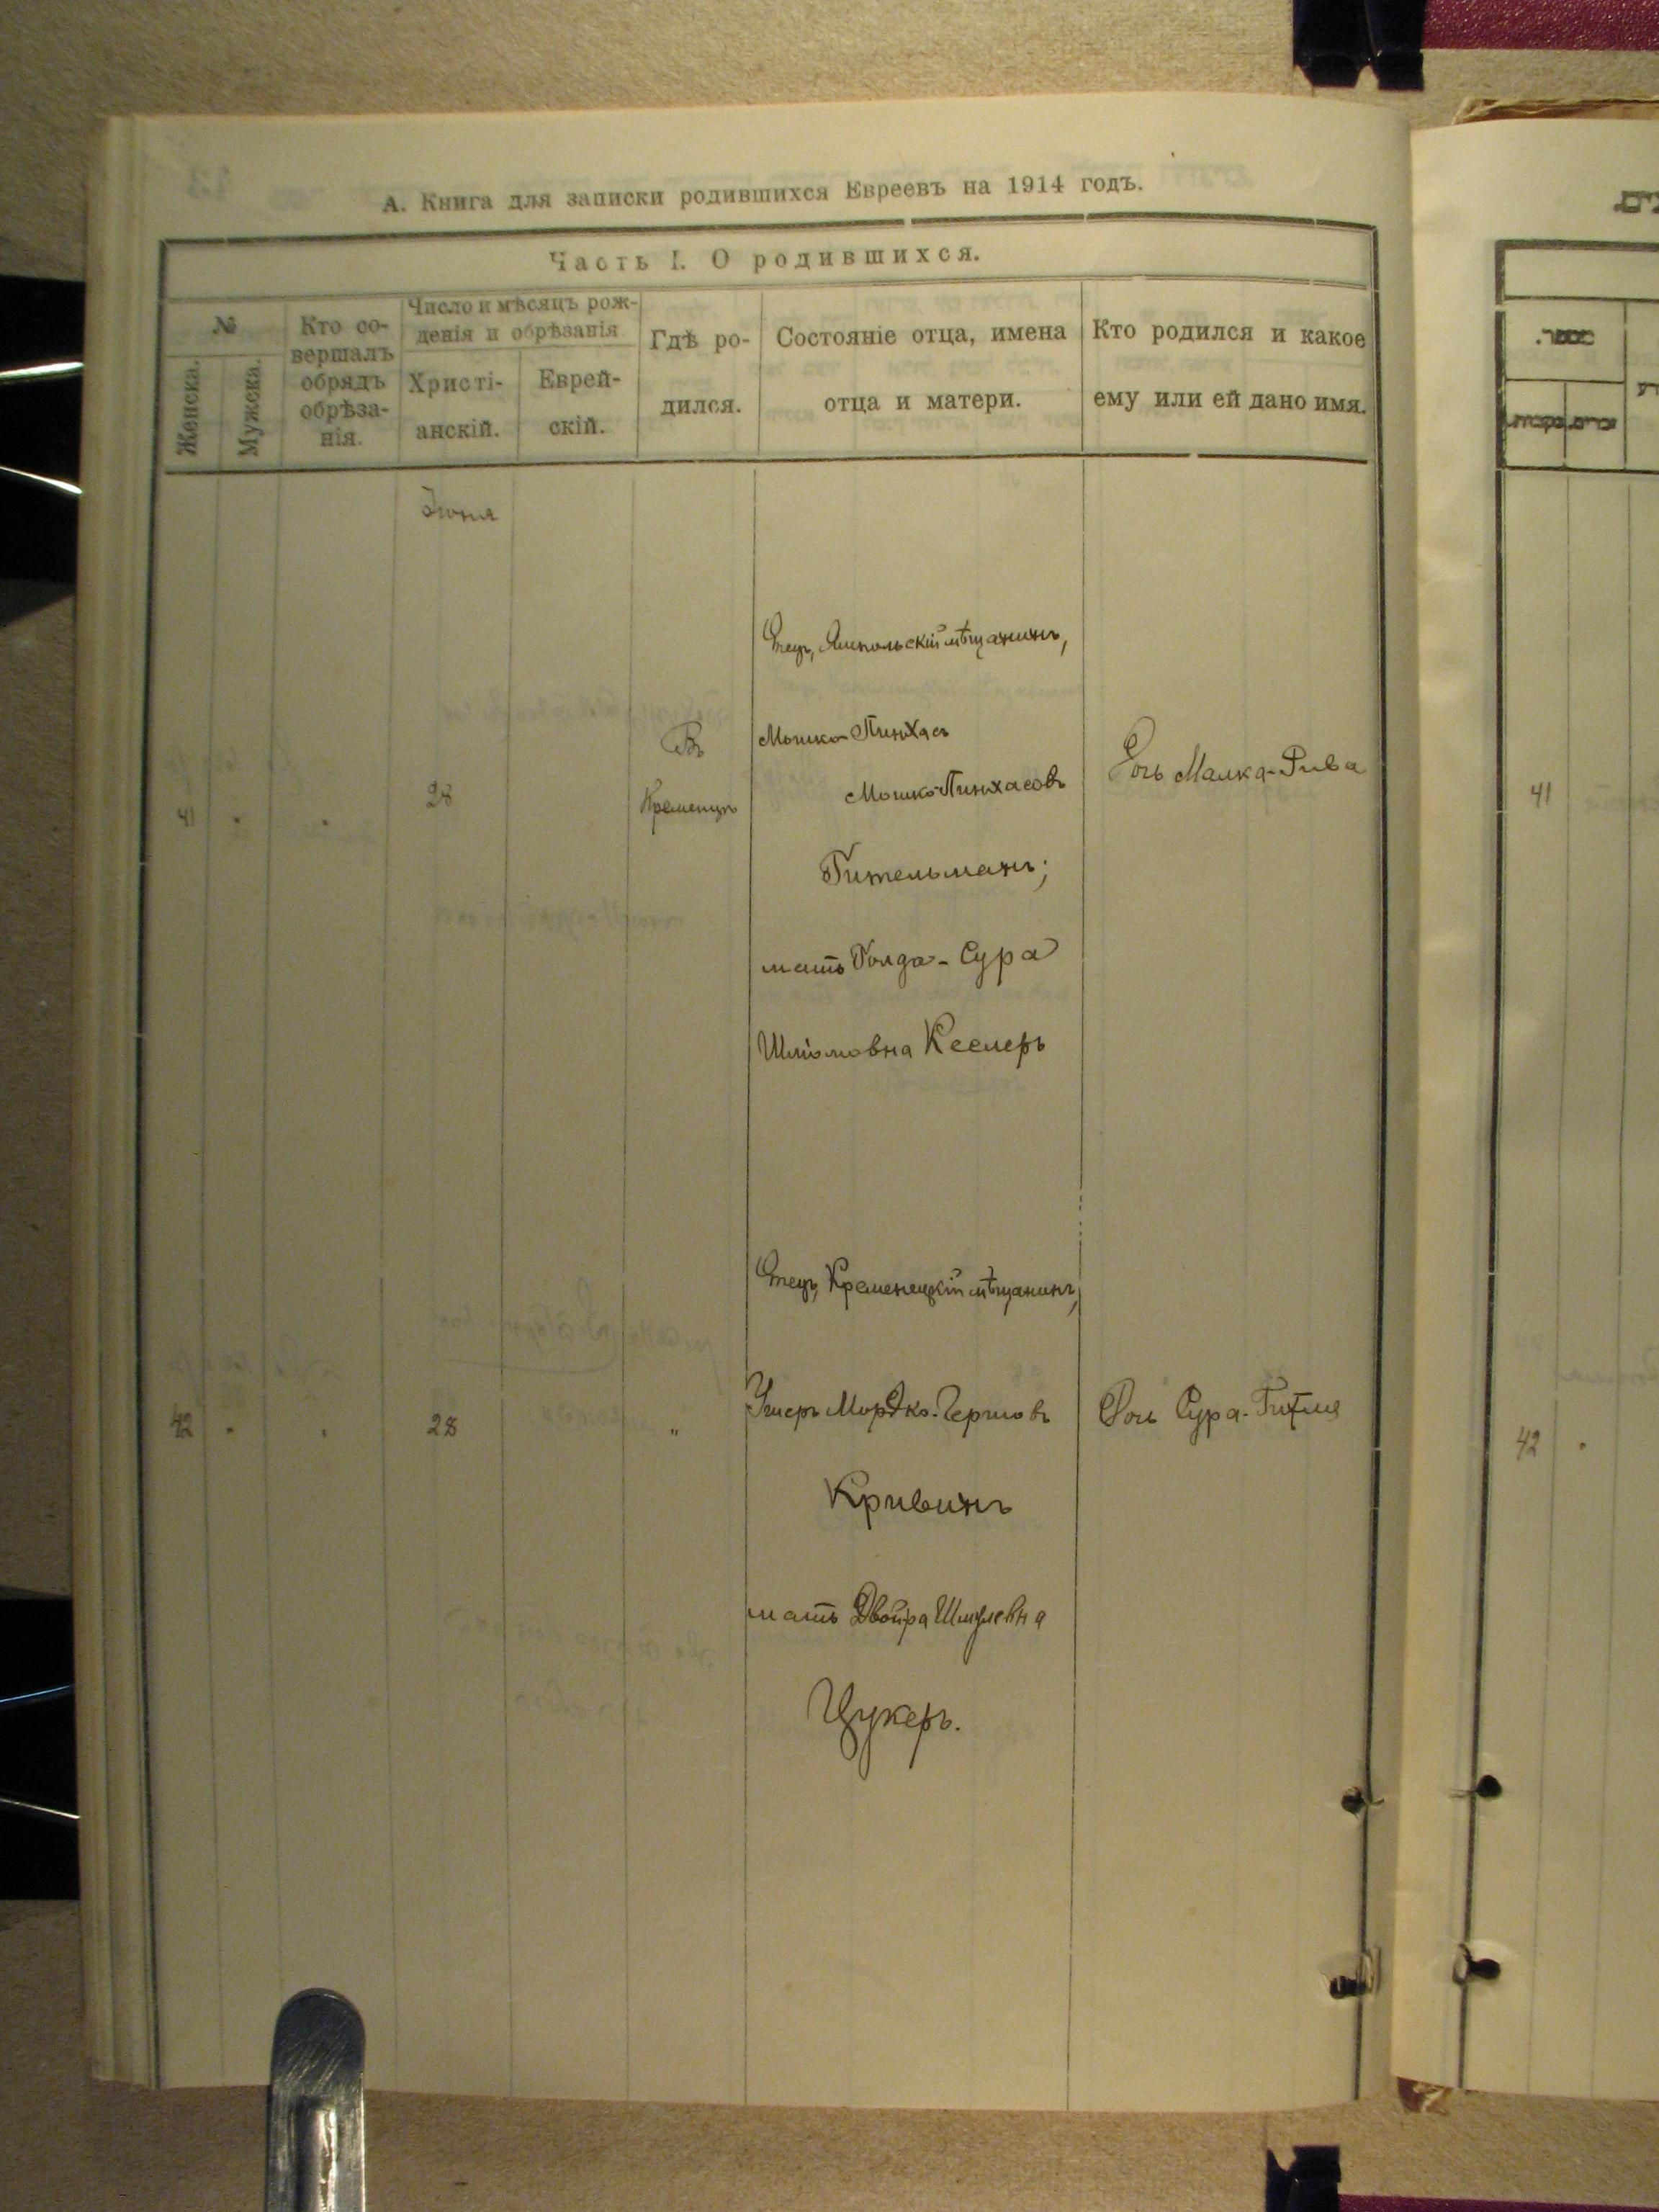 А. Книга для записки родившихся Евреевъ на 1914 годъ.
Часть I. О родившихся.
№
Женска.
Мужска.
Кто со-
вершалъ
обрядъ
обрѣза-
нія.
Число и мѣсяцъ рож-
денія и обрѣзанія
Христі-
анскій.
Еврей-
скій.
Гдѣ ро-
дился.
Состояніе отца, имена
отца и матери.
Кто родился и какое
ему или ей дано имя.
Іюня
41
28
Въ
Кременцѣ
Отецъ, Ямпольскій мѣщанинъ,
Мошко-Пинхасъ
Мошко-Пинхасовъ
Гительманъ;
мать Голда-Сура
Шліомовна Кеслеръ
Дочь Малка-Рива
42
28
"
Отецъ, Кременецкій мѣщанинъ,
Мордко-Гершовъ
Кривинъ
мать Двойра Шмулевна
Цукеръ.
Дочь Сура-Гитля
41
42